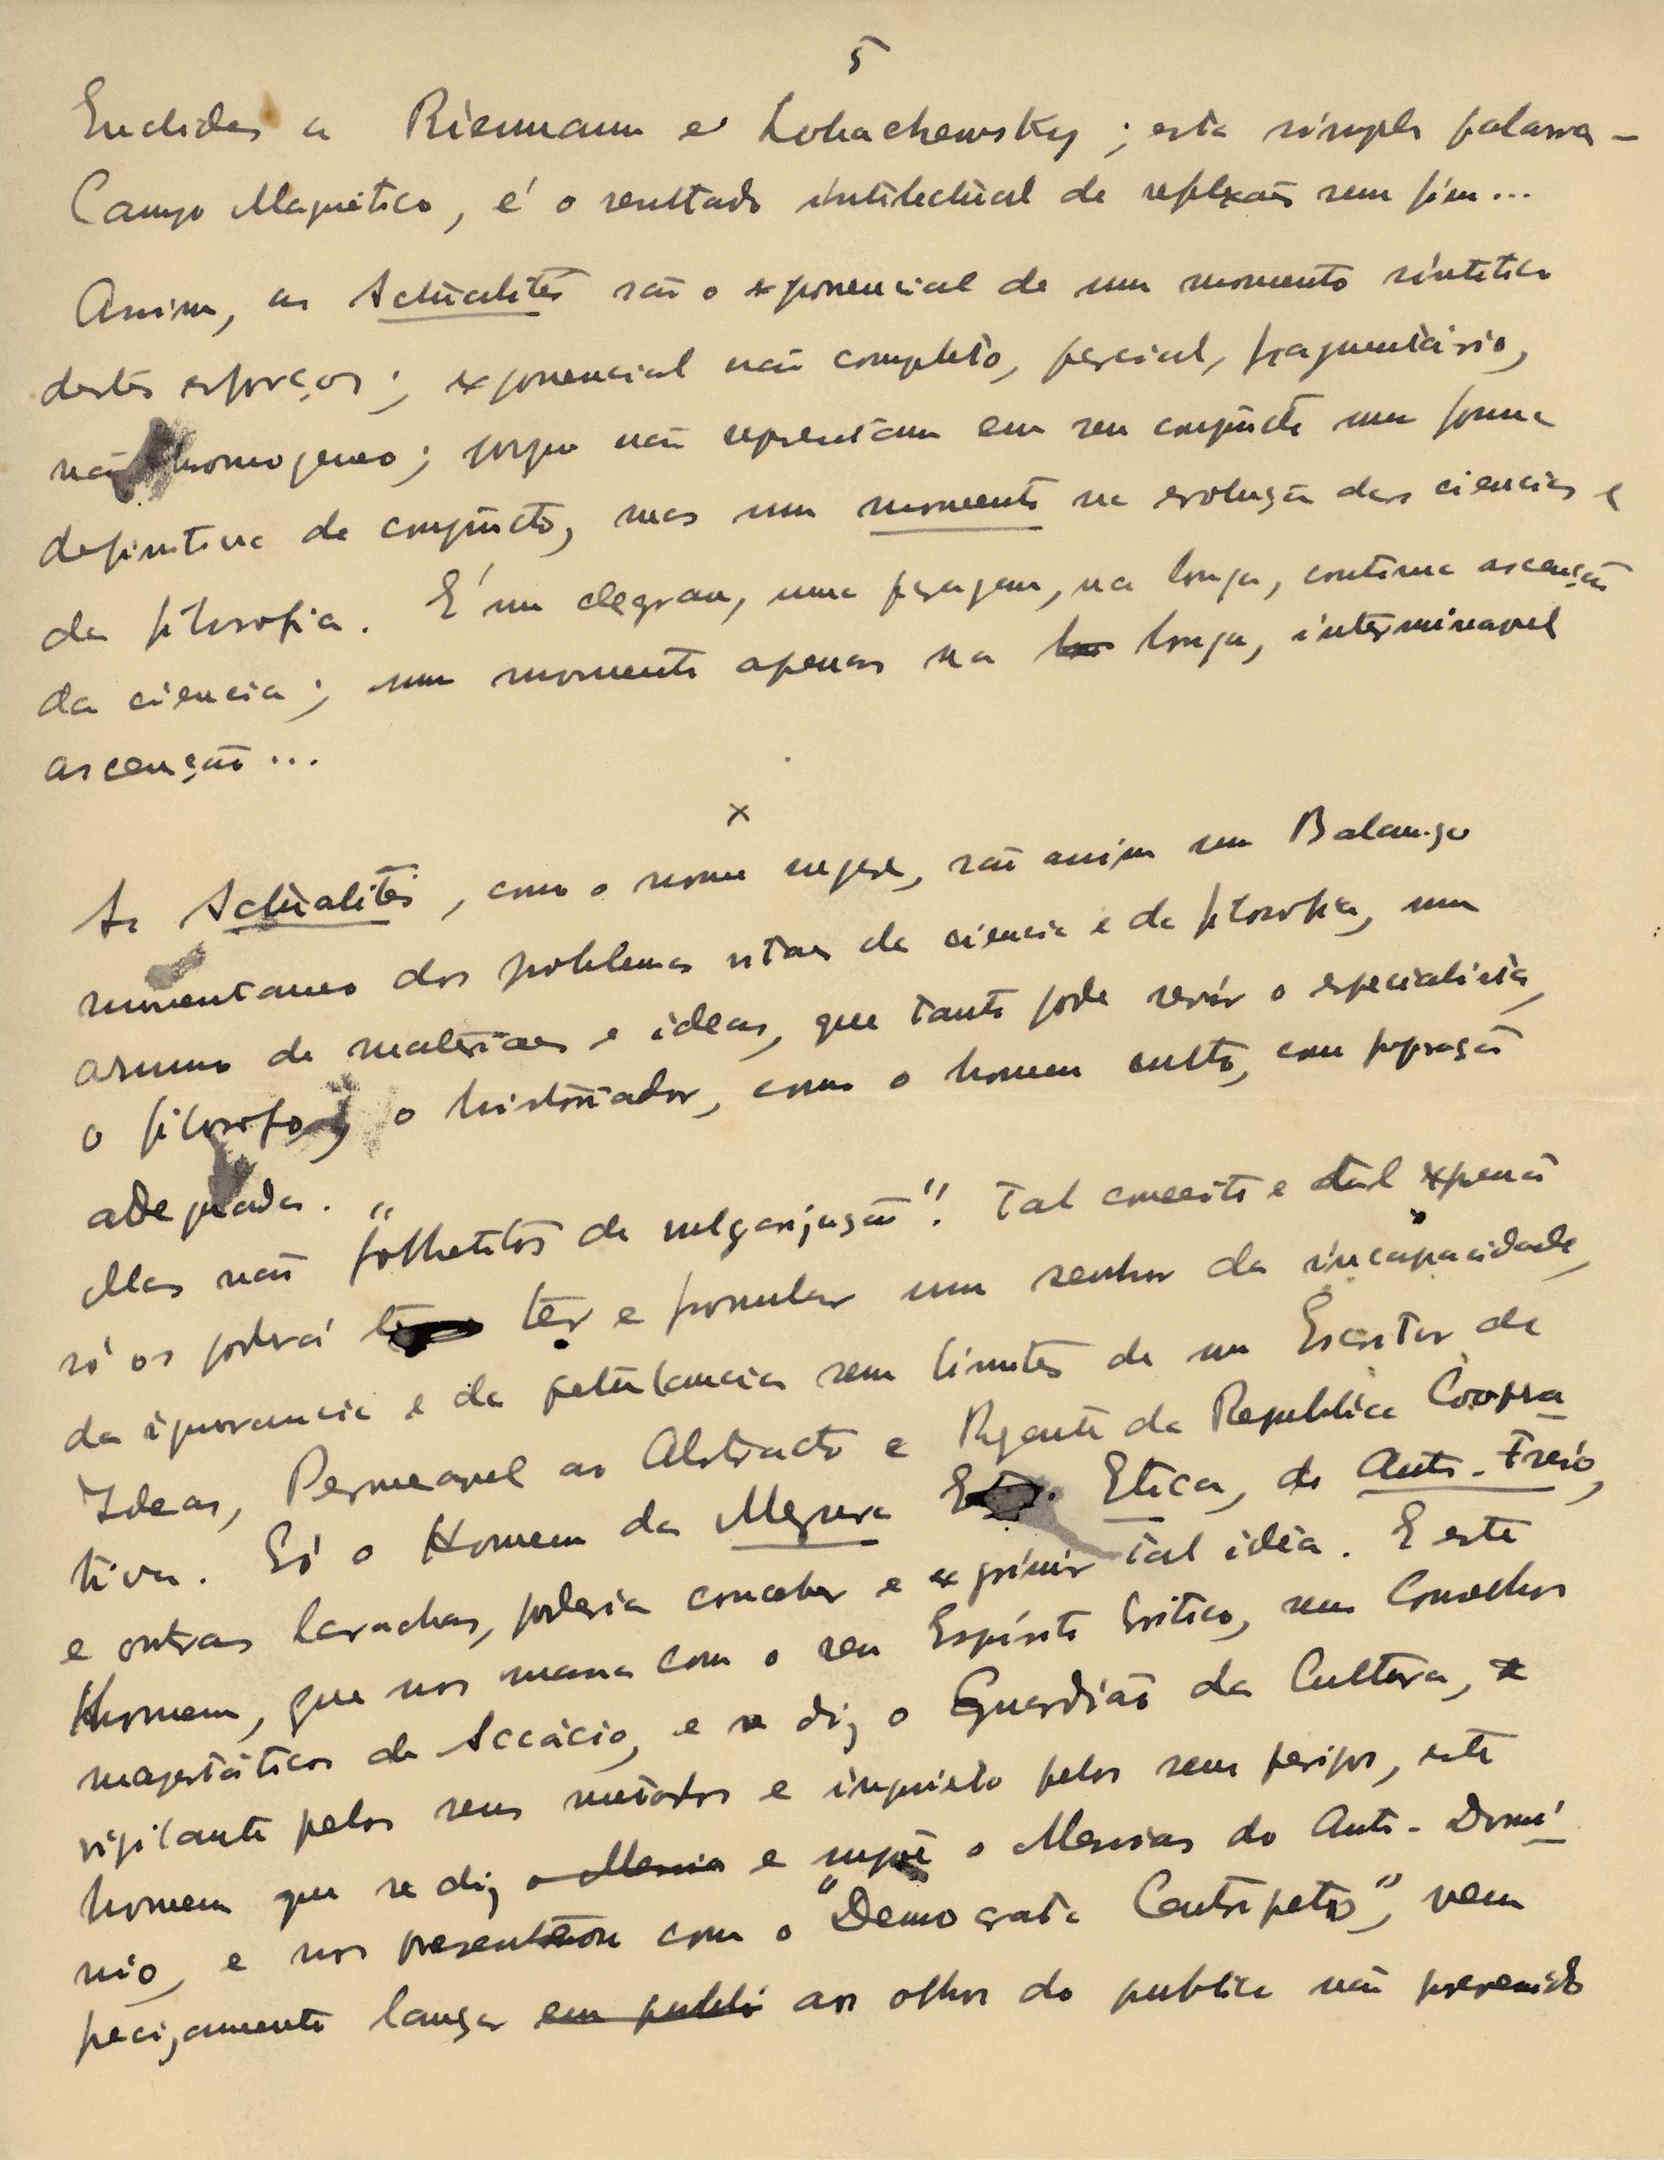 5
Euclides a Riemann e Lobachewsky ; esta simples palavra –
Campo Magnético, é o resultado intilectual de reflexões sem fim...
Assim, as Actualités são o exponencial de um momento sintetico
destes esforços ; exponencial não completo, parcial, fragmentário,
não homogeneo ; porque não representam em seu conjuncto uma forma
definitiva de conjuncto, mas um momento na evolução das ciencias e
da filosofia. É um degrau, uma paragem, na longa, continua ascenção
da ciencia ; um momento apenas na longa, interminavel
ascenção...
x
As Actualités, como o nome sugere, são assim um Balanço
momentaneo dos problemas vitaes da ciencia e da filosofia, um
acumo de materiaes e ideas, que tanto pode servir o especialista,
o filosofo, o historiador, como o homem culto, com preparação
adequada.
Mas não "folhetitos de vulgarização". Tal conceito e tal expressão
só os poderá ter e formular um senhor da incapacidade,
da ignorancia e da petulancia sem limites de um Escritor de
Ideas, Permeavel ao Abstracto e Regente da Republica Coopera
tiva. Só o Homem da Megera Etica, do Anti-Freio,
e outras larachas, poderia conceber e exprimir tal idéa. E este
Homem, que nos massa com o seu Espirito Critico, seus Conselhos
majestáticos de Accácio, e se diz o Guardião da Cultura,
vigilante pelos seus metodos e inquieto pelos seus perigos, este
homem que se diz o Messia e supõe o Messias do Anti-Domí
nio, e nos presenteou com o "Democrata Centripeto", vem
pecizamente lançar em publi aos olhos do publico não prevenido